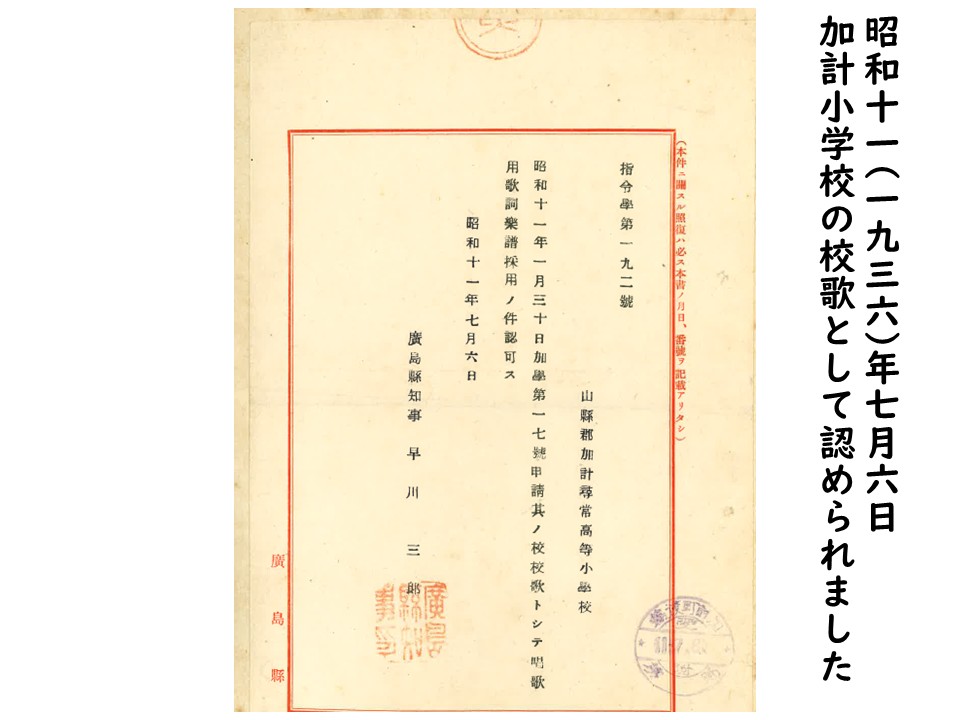 昭和十一(一九三六)年七月六日
加計小学校の校歌として認められました
(本件ニ關スル照復ハ必ス本書ノ月日、番號ヲ記載アリタシ)
指令學第一九二號
山縣郡加計尋常高等小學校
昭和十一年一月三十日加學第一七號申請其ノ校校歌トシテ唱歌
用歌詞樂譜採用ノ件認可ス
昭和十一年七月六日
廣島縣知事 早川三郎
廣島縣